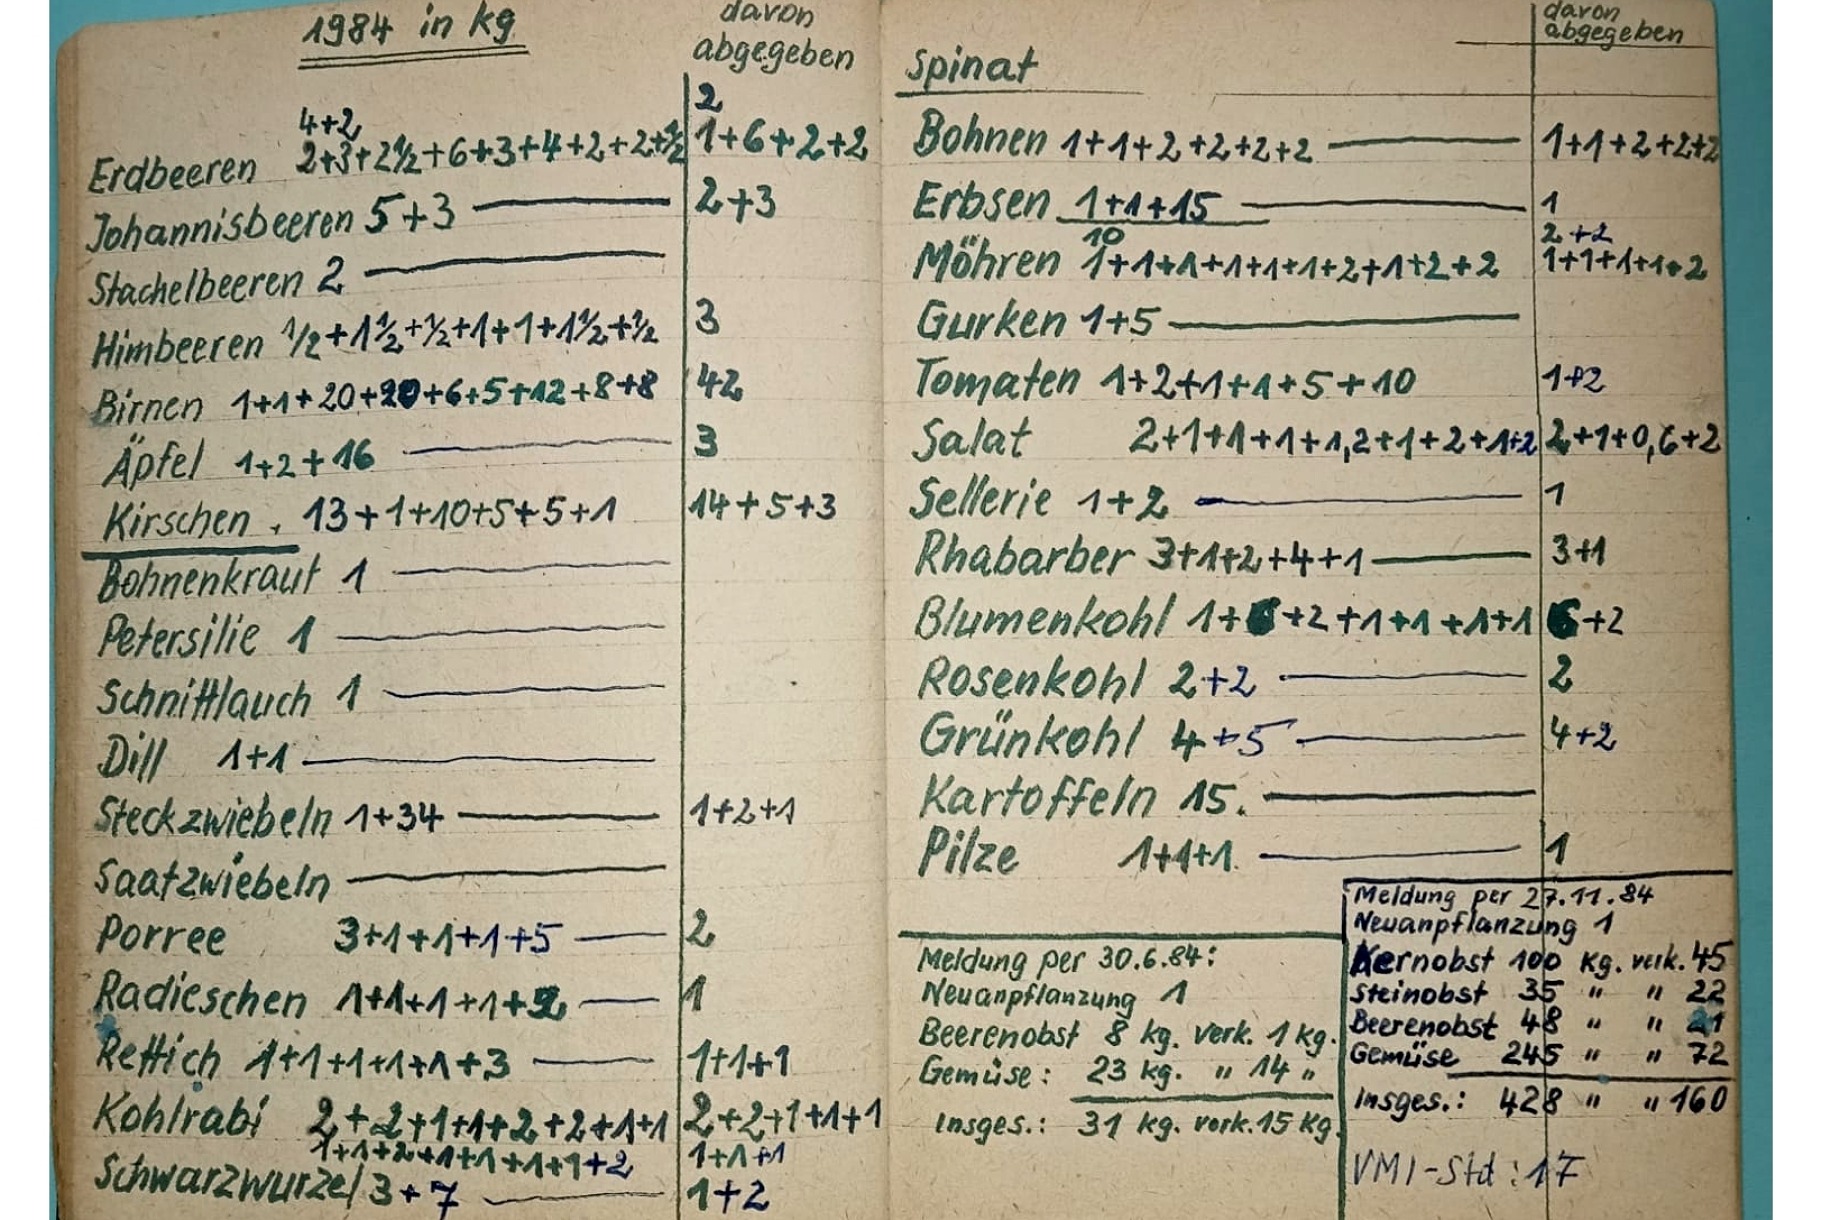 1984 in kg
davon
abgegeben
2
4+2
Erdbeeren 2+3+2½+6+3+4+2+2+½ 1+6+2+2
Johannisbeeren 5+3 2+3
Stachelbeeren 2
Himbeeren ½+1½+½+1+1+1½+½ 3
Birnen 1+1+20+20+6+5+12+8+8 42
Äpfel 1+2+16 3
Kirschen 13+1+10+5+5+1 14+5+3
Bohnenkraut 1
Petersilie 1
Schnittlauch 1
Dill 1+1
Steckzwiebeln 1+34 1+2+1
Saatzwiebeln
Porree 3+1+1+1+5 2
Radieschen 1+1+1+1+2 1
Rettich 1+1+1+1+1+3 1+1+1
Kohlrabi 2+2+1+1+2+2+1+1 2+2+1+1+1
1+1+2+1+1+1+1+2 1+1+1
Schwarzwurzel 3+7 1+2
davon
abgegeben
Spinat
Bohnen 1+1+2+2+2+2 1+1+2+2+2
Erbsen 1+1+15 1
10 2+2
Möhren 1+1+1+1+1+1+2+1+2+2 1+1+1+1+2
Gurken 1+5
Tomaten 1+2+1+1+5+10 1+2
Salat 2+1+1+1+1,2+1+2+1+2 2+1+0,6+2
Sellerie 1+2 1
Rhabarber 3+1+2+4+1 3+1
Blumenkohl 1+6+2+1+1+1+1 6+2
Rosenkohl 2+2 2
Grünkohl 4+5 4+2
Kartoffeln 15.
Pilze 1+1+1 1
Meldung per 30.6.84:
Neuanpflanzung 1
Beerenobst 8 kg. verk. 1 kg.
Gemüse: 23 kg. " 14 "
Insges.: 31 kg. verk. 15 kg.
Meldung per 27.11.84
Neuanpflanzung 1
Kernobst 100 kg. verk. 45
Steinobst 35 " " 22
Beerenobst 48 " " 21
Gemüse 245 " " 72
Insges.: 428 " " 160
VMI-Std: 17